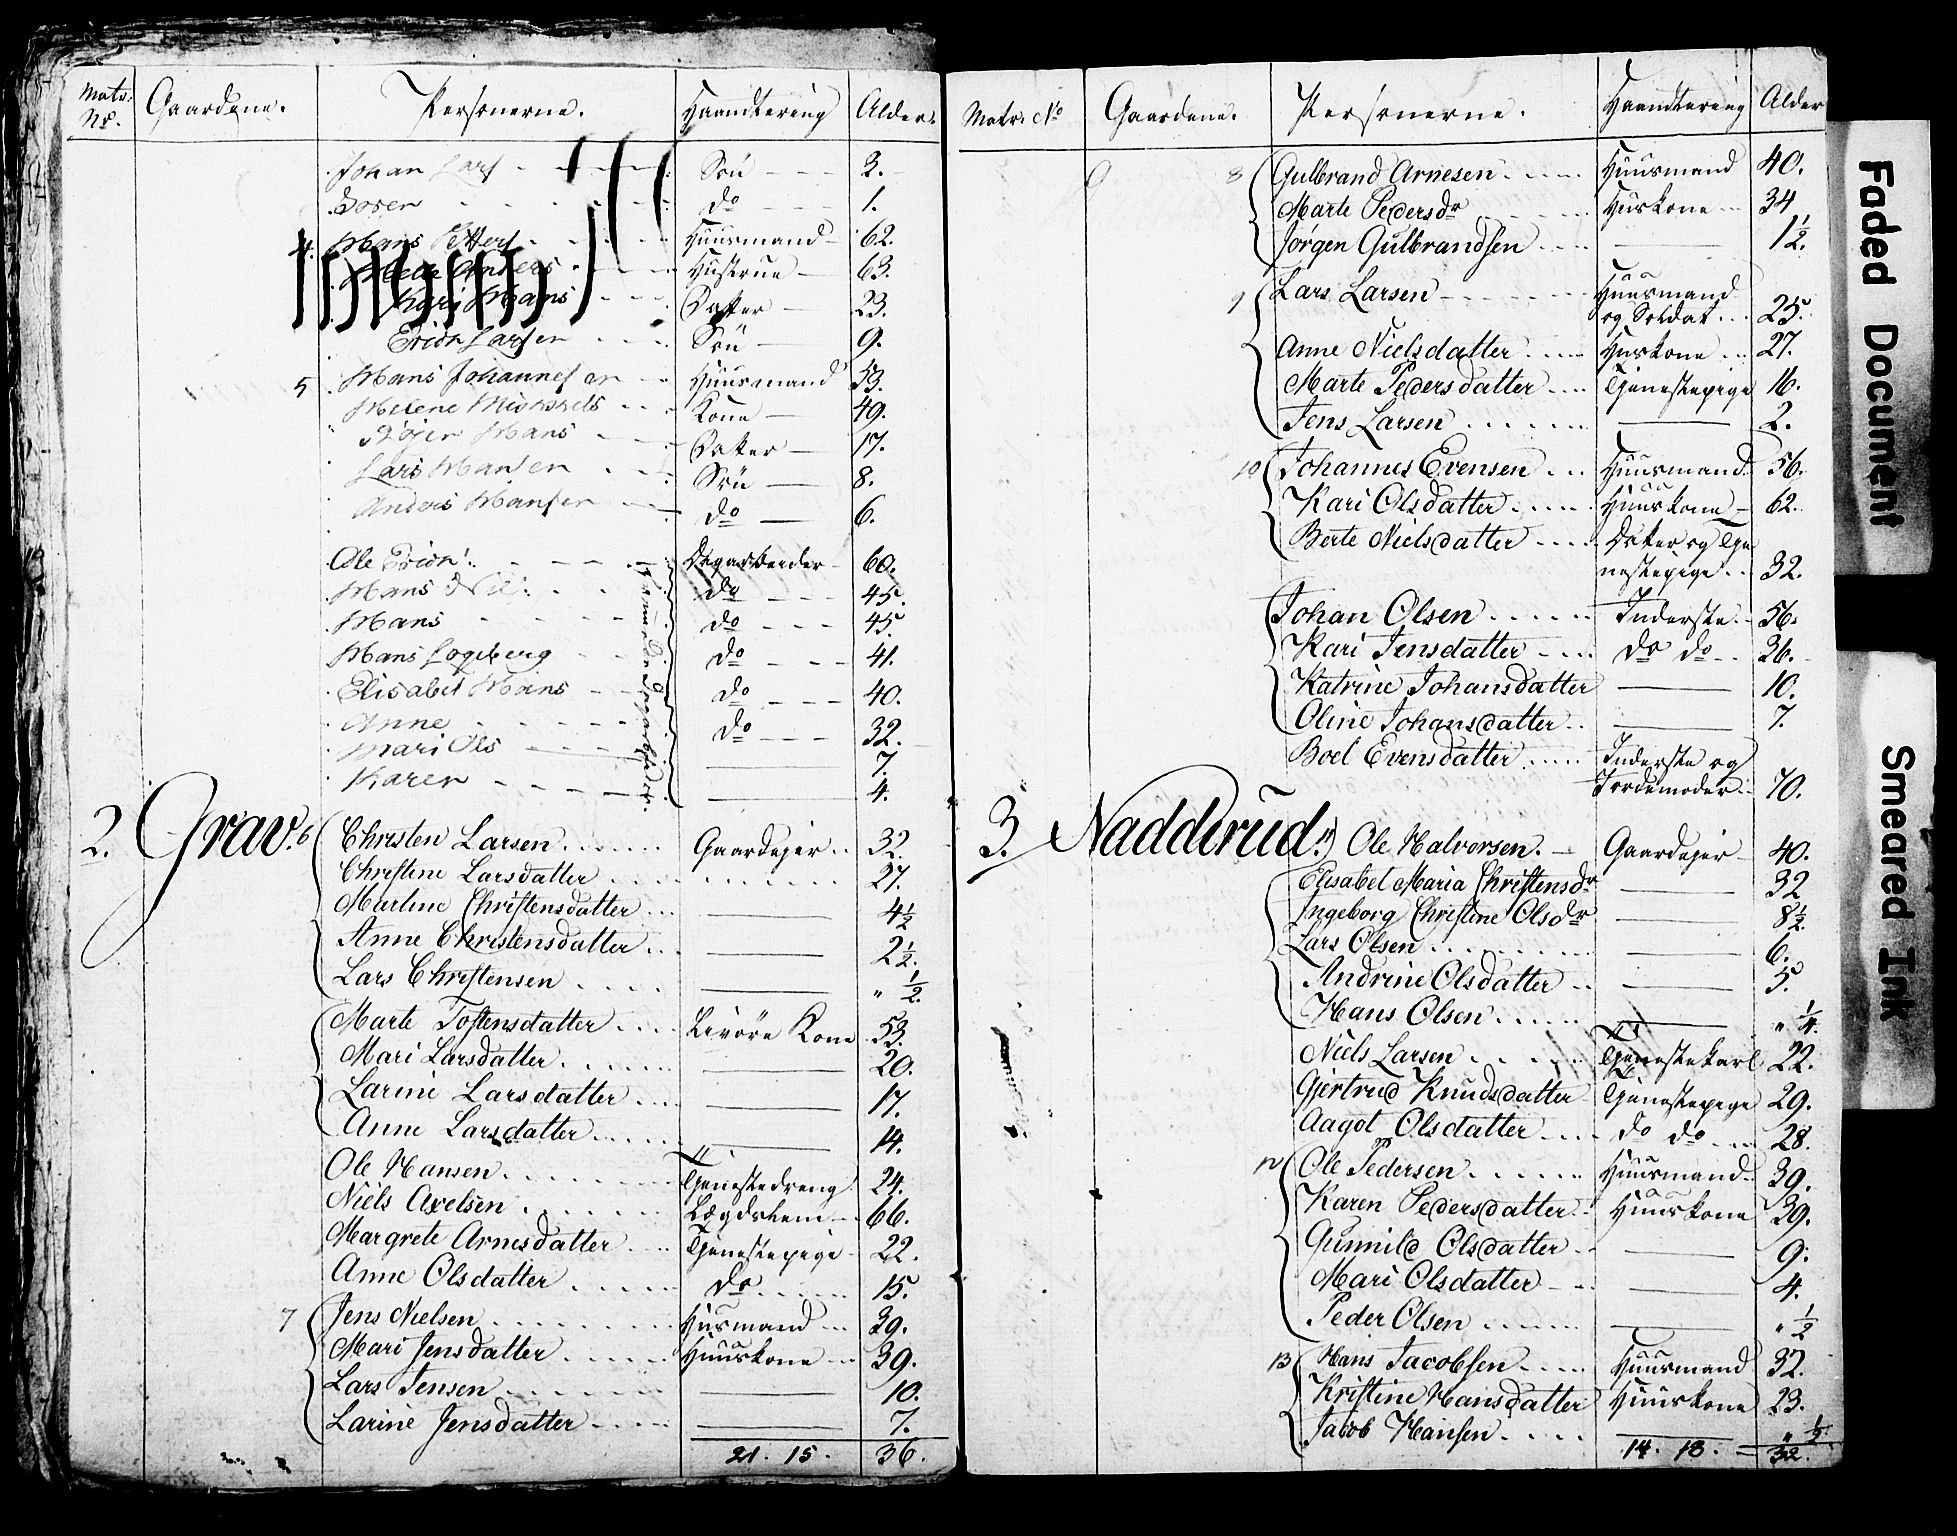 Matr: No. Gaardene. Personerne. Haandtering Alder.
Johan Lars Sön 3.
do 1.
4. Hans Huusmand 62.
Hustrue 63.
Kari Hans Datter 23.
Erich Larsen Sön 9.
5 Hans Johannesen Huusmand 53.
Helene Kone 49.
Hans Datter 17.
Lars Hansen Sön 8.
Anders Hansen do 6.
Ole Erich: Dagarbeider 60.
Hans do 45.
Hans do 45.
Hans do 41.
Elisabet Hans do 40.
Anne do 32.
Mari Ols 7.
Karen 4.
2. Grav. 6 Christen Larsen Gaardejer 32.
Christine Larsdatter 27.
Martine Christensdatter 4½
Anne Christensdatter 2½.
Lars Christensen " ½.
Marte Tostensdatter Livöre Kone 53.
Mari Larsdatter 20.
Larine Larsdatter 17.
Anne Larsdatter 14.
Ole Hansen Tjenestedreng 24.
Niels Axelsen Lægdslem 66.
Margrete Arnesdatter Tjenestepige 22.
Anne Olsdatter do 15.
7 Jens Nielsen Husmand 39.
Mari Jensdatter Huuskone 39.
Lars Jensen 10.
Larine Jensdatter 7.
21. 15. 36.
Matr: No Gaardene. Personerne. Haandtering Alder
8 Gulbrand Arnesen Huusmand 40.
Marte Pedersdr Huskone 34
Jørgen Gulbrandsen 1½.
9 Lars Larsen Huusmand
og Soldat 25.
Anne Nielsdatter Huskone 27.
Marte Pedersdatter Tjenestepige 16.
Jens Larsen 2.
10 Johannes Evensen Huusmand 56.
Kari Olsdatter Huuskone 62.
Berte Nielsdatter Datter og Tje
nestepige 32.
Johan Olsen Inderste 56.
Kari Jensdatter do do 36.
Katrine Johansdatter 10.
Oline Johansdatter 7.
Boel Evensdatter Inderste og
Jordemoder 70.
3. Nadderud. 11) Ole Halvorsen. Gaardejer 40.
Elisabet Maria Christensdr 32
Ingeborg Christine Olsdr 8½.
Lars Olsen 6.
Andrine Olsdatter 5.
Hans Olsen " ¼.
Niels Larsen Tjenestekarl 22.
Gjertrud Knudsdatter Tjenestepige 29.
Aagot Olsdatter do do 28.
12 Ole Pedersen Huusmand 39.
Karen Pedersdatter Huuskone 39.
Gunnild Olsdatter 9.
Mari Olsdatter 4.
Peder Olsen " ½
13 Hans Jacobsen Huusmand 32.
Kristine Hansdatter Huuskone 23.
Jacob Hansen
14. 18. = 32.
Faded Document
Smeared Ink